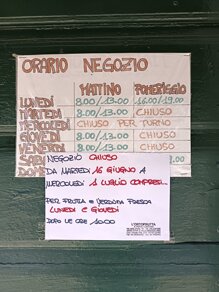 ORARIO NEGOZIO
MATTINO POMERIGGIO
LUNEDÌ 8.00/13.00 16.00/19.00
MARTEDÌ 8.00/13.00 CHIUSO
MERCOLEDÌ CHIUSO PER TURNO
GIOVEDÌ 8.00/13.00 CHIUSO
VENERDÌ 8.00/13.00 CHIUSO
SABA
DOME
NEGOZIO CHIUSO
DA MARTEDÌ 16 GIUGNO A
MERCOLEDÌ 1 LUGLIO COMPRESI...
PER FRUTTA E VERDURA FRESCA
LUNEDÌ E GIOVEDÌ
DOPO LE ORE 10.00
L'ORTOFRUTTA